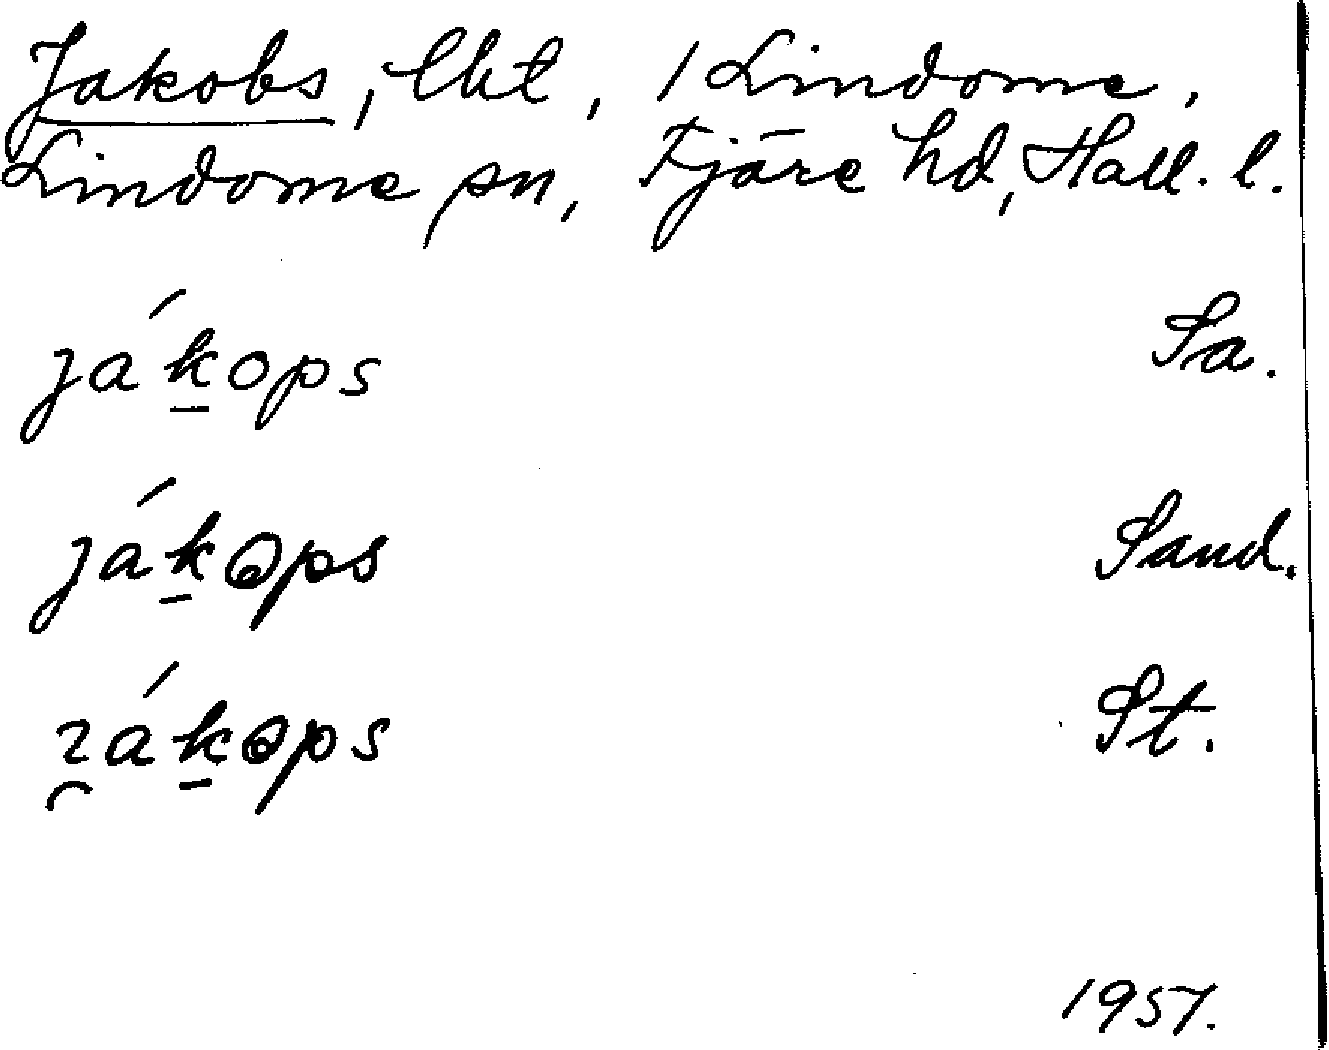 Jakobs, lht, 1 Lindome,
Lindome sn, Fjäre hd, Hall. l.
ják̲ops Sa.
ják̲ops Sand.
ják̲ops St.
1957.